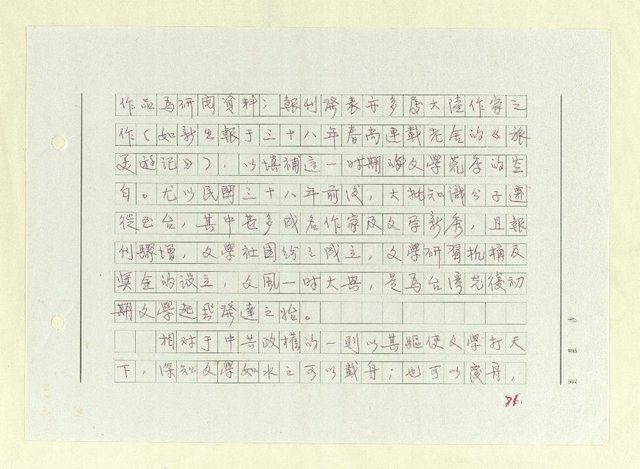 作品為研閱資料；報刊發表亦多屬大陸作家之
作（如新生報于三十八年春尚連載老舍的《旅
美遊記》），以填補這一時期的文學荒季的空
白。尤以民國三十八年前後，大批知識分子遷
徙至台，其中甚多成名作家及文学新秀，且報
刊驟增，文學社團紛紛成立，文學研習机構及
獎金的設立，文風一时大興，是為台湾光復初
期文學起飛發達之始。
相对于中共政權的一則以其驅使文學打天
下，深知文學如水之可以載舟；也可以覆舟，
76.